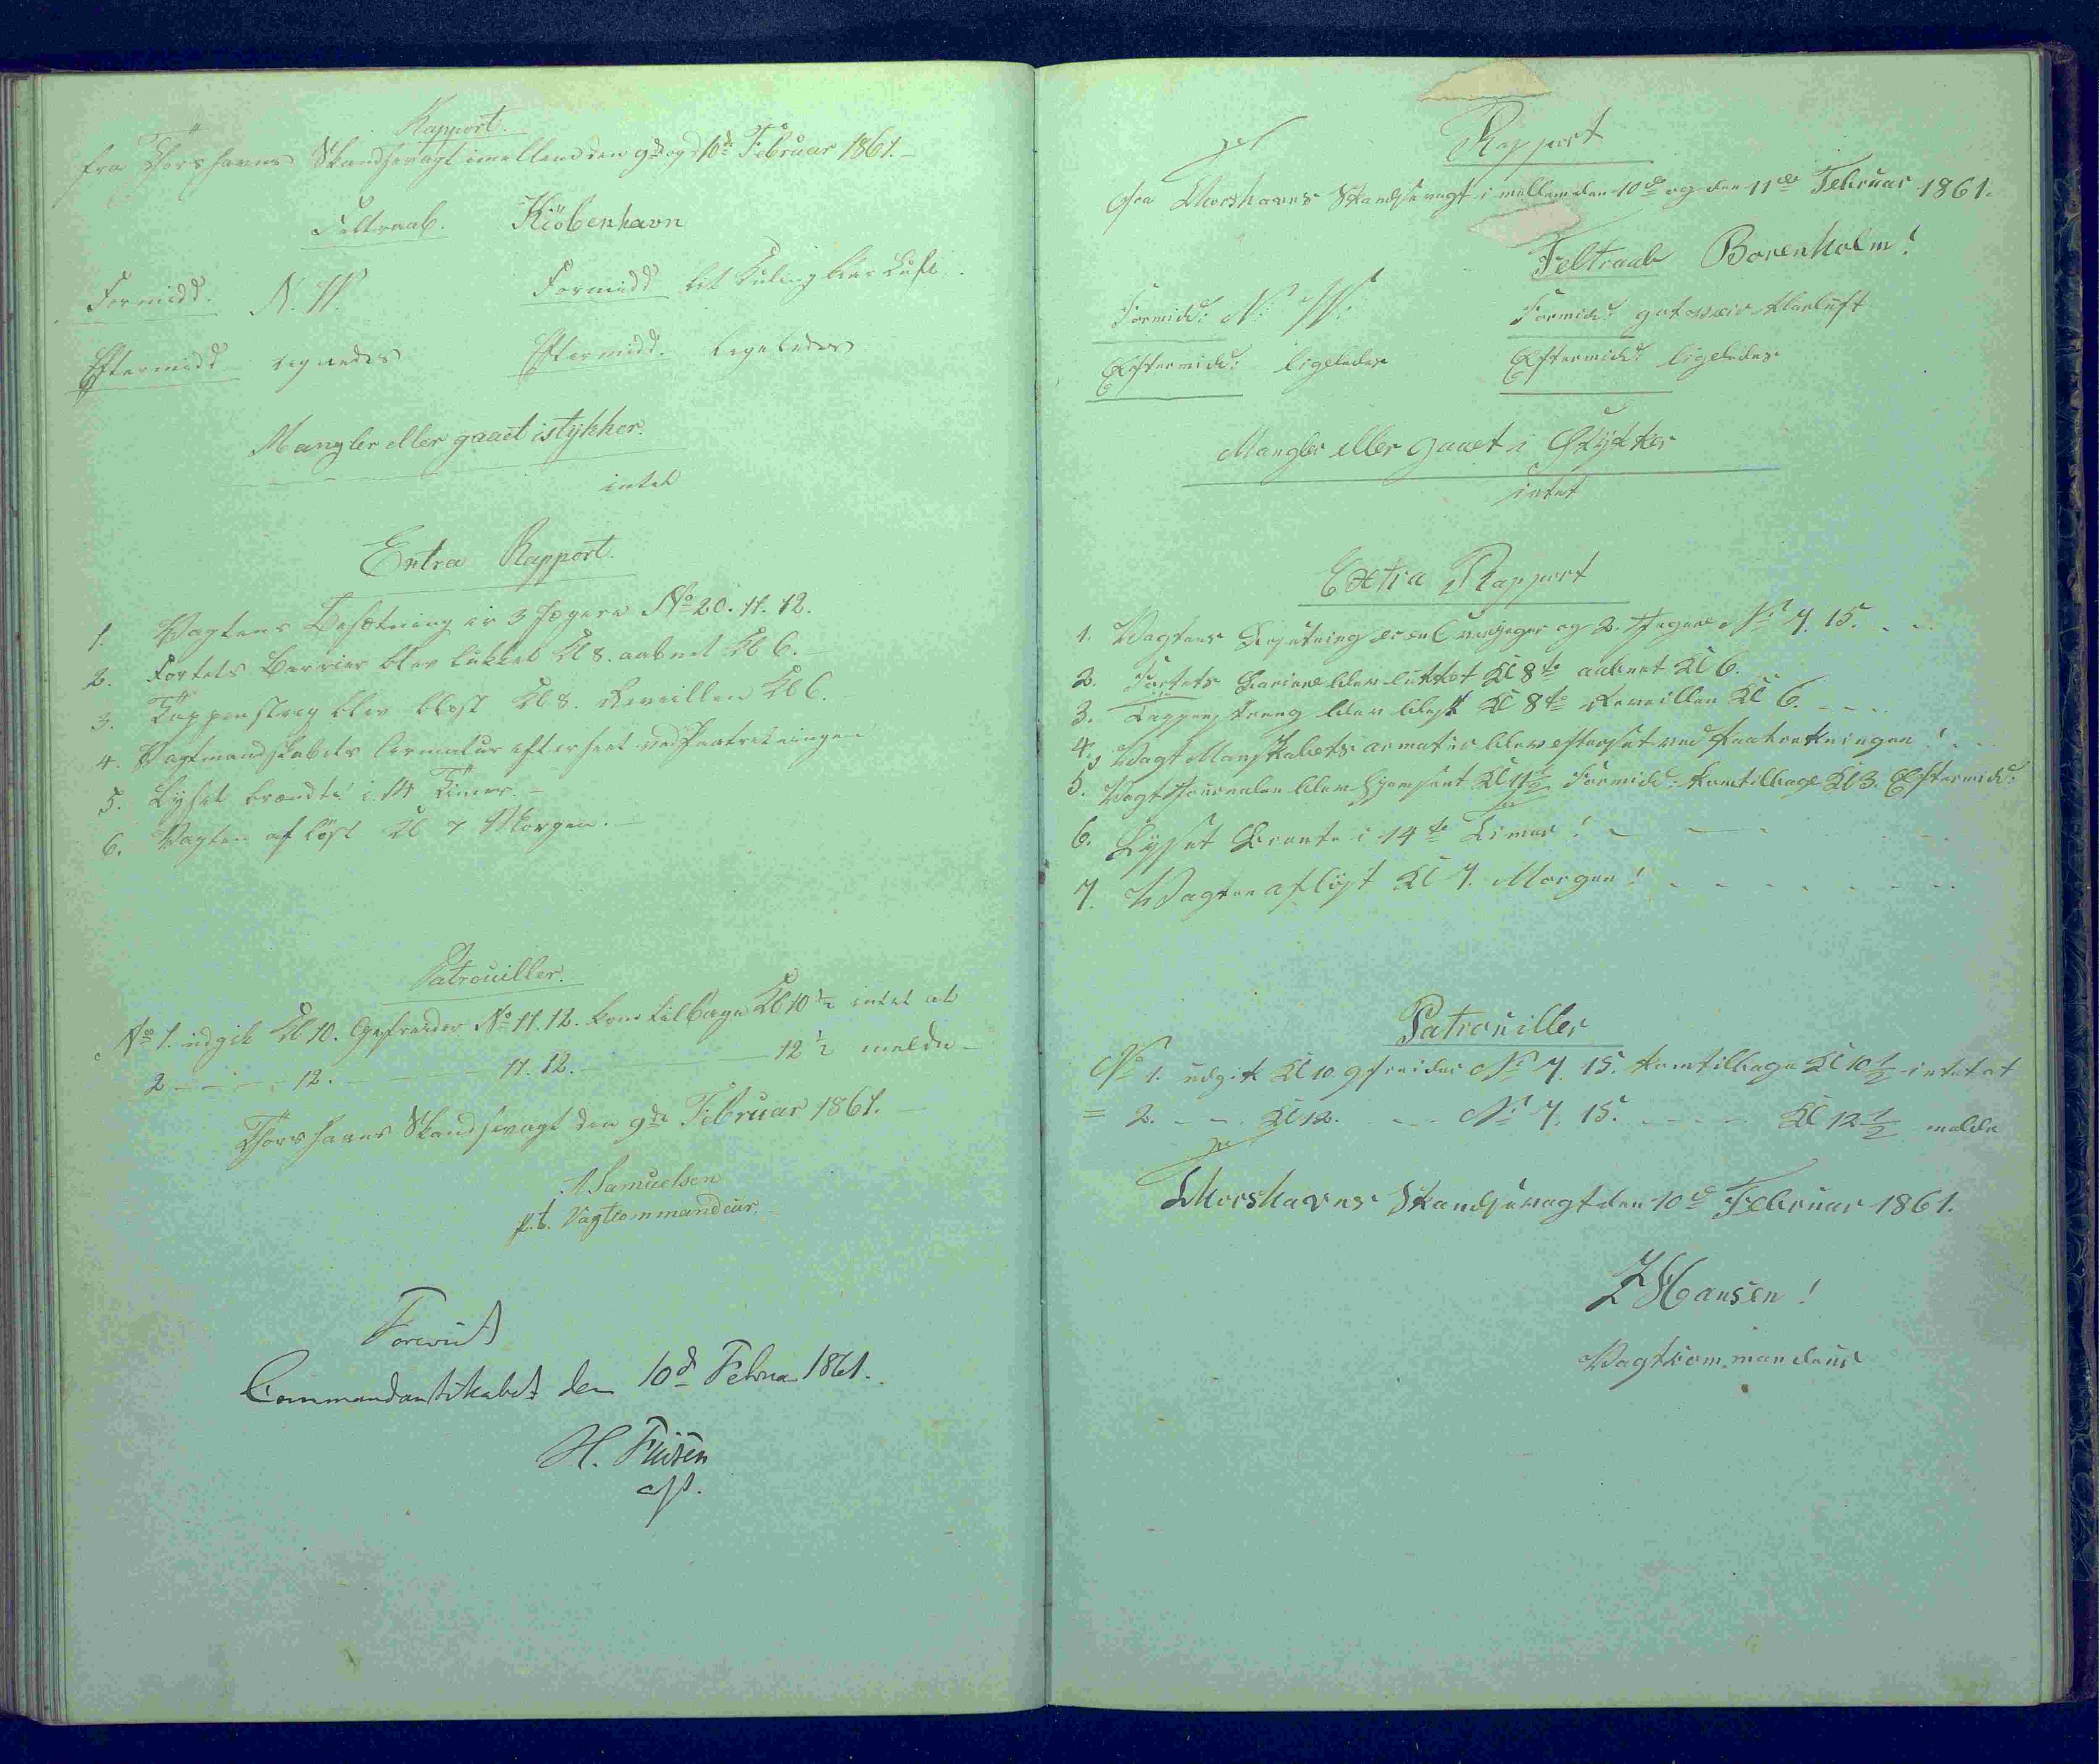 Rapport.
fra Thorshavns Skandsevagt imellem den 9de og 10de Februar 1861.
Feltraab. Kiöbenhavn
Formidd. N. W. Formidd. let Kuling klar Luft.
Eftermidd. ligeledes Eftermidd. ligeledes
Mangler eller gaaet istykker.
intet
Extra Rapport.
1. Vagtens Besætning er 3 Jægere No 20. 11. 12.
2. Fortets Barrier blev lukket Kl 8. aabnet Kl 6.
3. Tappenstreg blev blæst Kl 8. Reveillen Kl 6.
4. Vagtmandskabets Armatur efterseet ved Paatrækningen
5. Lyset brændte i 14 Timer.
6. Vagten afløst Kl 7 Morgen.
Patrouiller.
No 1. udgik Kl 10. Gefreider No 11. 12. kom tilbage Kl 10 1/2 intet at
2 - - - 12. - - - 11. 12. - - - 12 1/2 melde
Thorshavns Skandsevagt den 9de Februar 1861.
Samuelsen
p.t. Vagtcommandeur.
Forevist
Commandantskabet den 10d Februar 1861.
Rapport
fra Thorshavns Skandsevagt i mellem den 10de og den 11de Februar 1861.
Feltraab Borenholm!
Formidd: N: W: Formidd: got veir klarluft
Eftermidd: ligeledes Eftermidd: ligeledes
Mangler eller gaaet i Stykker
intet
Extra Rapport
1. Vagtens Besetning er en Corps og 2. Jægere No 7. 15.
2. Fortets Bariere blev lukket Kl 8te aabnet Kl 6.
3. Tappenstreng blev blest Kl 8te Reveillen Kl 6.
4. Vagt Manskabets armatur blev efterset ved Paatrekningen!
5. Vagt Journalen blev hjemsent Kl 11 1/2 Formidd: kom tilbage Kl 3. Eftermidd:
6. Lysset Brente i 14te Timer!
7. Vagten afløst Kl 7. Morgen!
Patrouiller
No 1. udgik Kl 10. gefreider No 7. 15. kom tilbage Kl 10 1/2 intet at
= 2. - - Kl 12. - - No 7. 15. - - - Kl 12 1/2 melde
Thorshavns Skandsevagt den 10d Februar 1861.
Hansen!
Vagtkommandeur